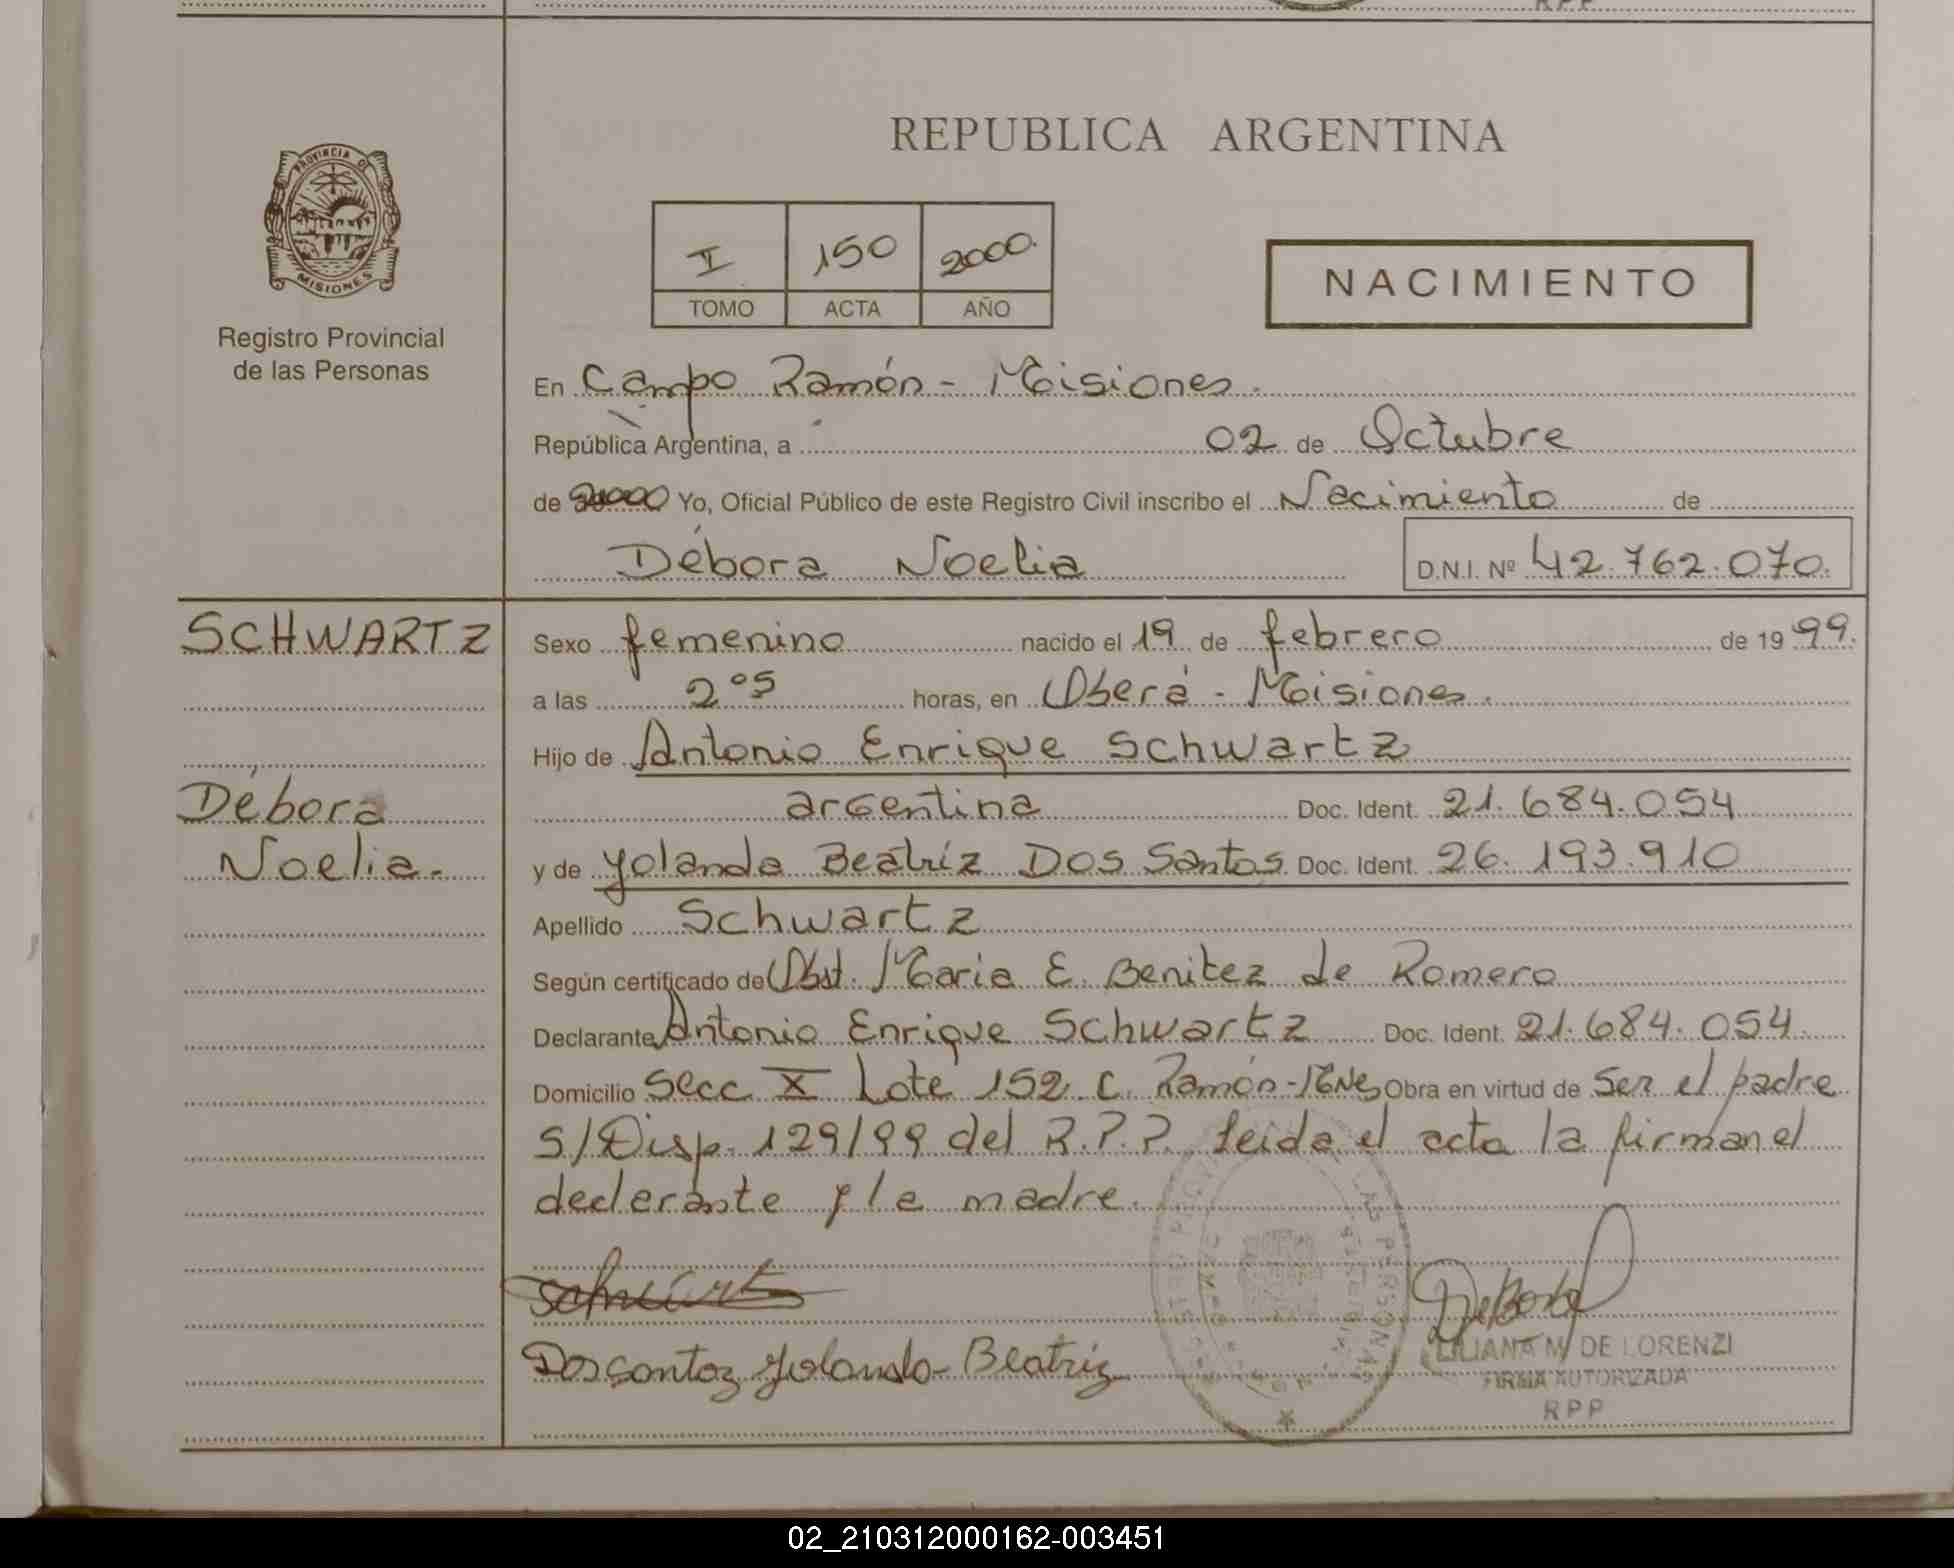 RPP
PROVINCIA DE
MISIONES
Registro Provincial
de las Personas
REPUBLICA ARGENTINA
I 150 2000.
TOMO ACTA AÑO
NACIMIENTO
En Campo Ramón - Misiones.
República Argentina, a 02 de Octubre
de 2000 Yo, Oficial Público de este Registro Civil inscribo el Nacimiento de
Débora Noelia D.N.I. Nº 42.762.070.
SCHWARTZ
Débora
Noelia.-
Sexo femenino nacido el 19 de febrero de 1999.
a las 2⁰⁵ horas, en Oberá - Misiones.
Hijo de Antonio Enrique Schwartz
argentina Doc. Ident. 21.684.054
y de Yolanda Beatríz Dos Santos Doc. Ident. 26.193.910
Apellido Schwartz
Según certificado de Obst. Maria E. Benitez de Romero
Declarante Antonio Enrique Schwartz Doc. Ident. 21.684.054.
Domicilio Secc X Lote 152 C. Ramón - Mnes Obra en virtud de Ser el padre
S/Disp. 129/99 del R.P.P. Leida el acta la firman el
declarante y la madre.
Schwartz
Dos santoz Yolanda Beatriz
LILIANA M. DE LORENZI
FIRMA AUTORIZADA
RPP
02_210312000162-003451